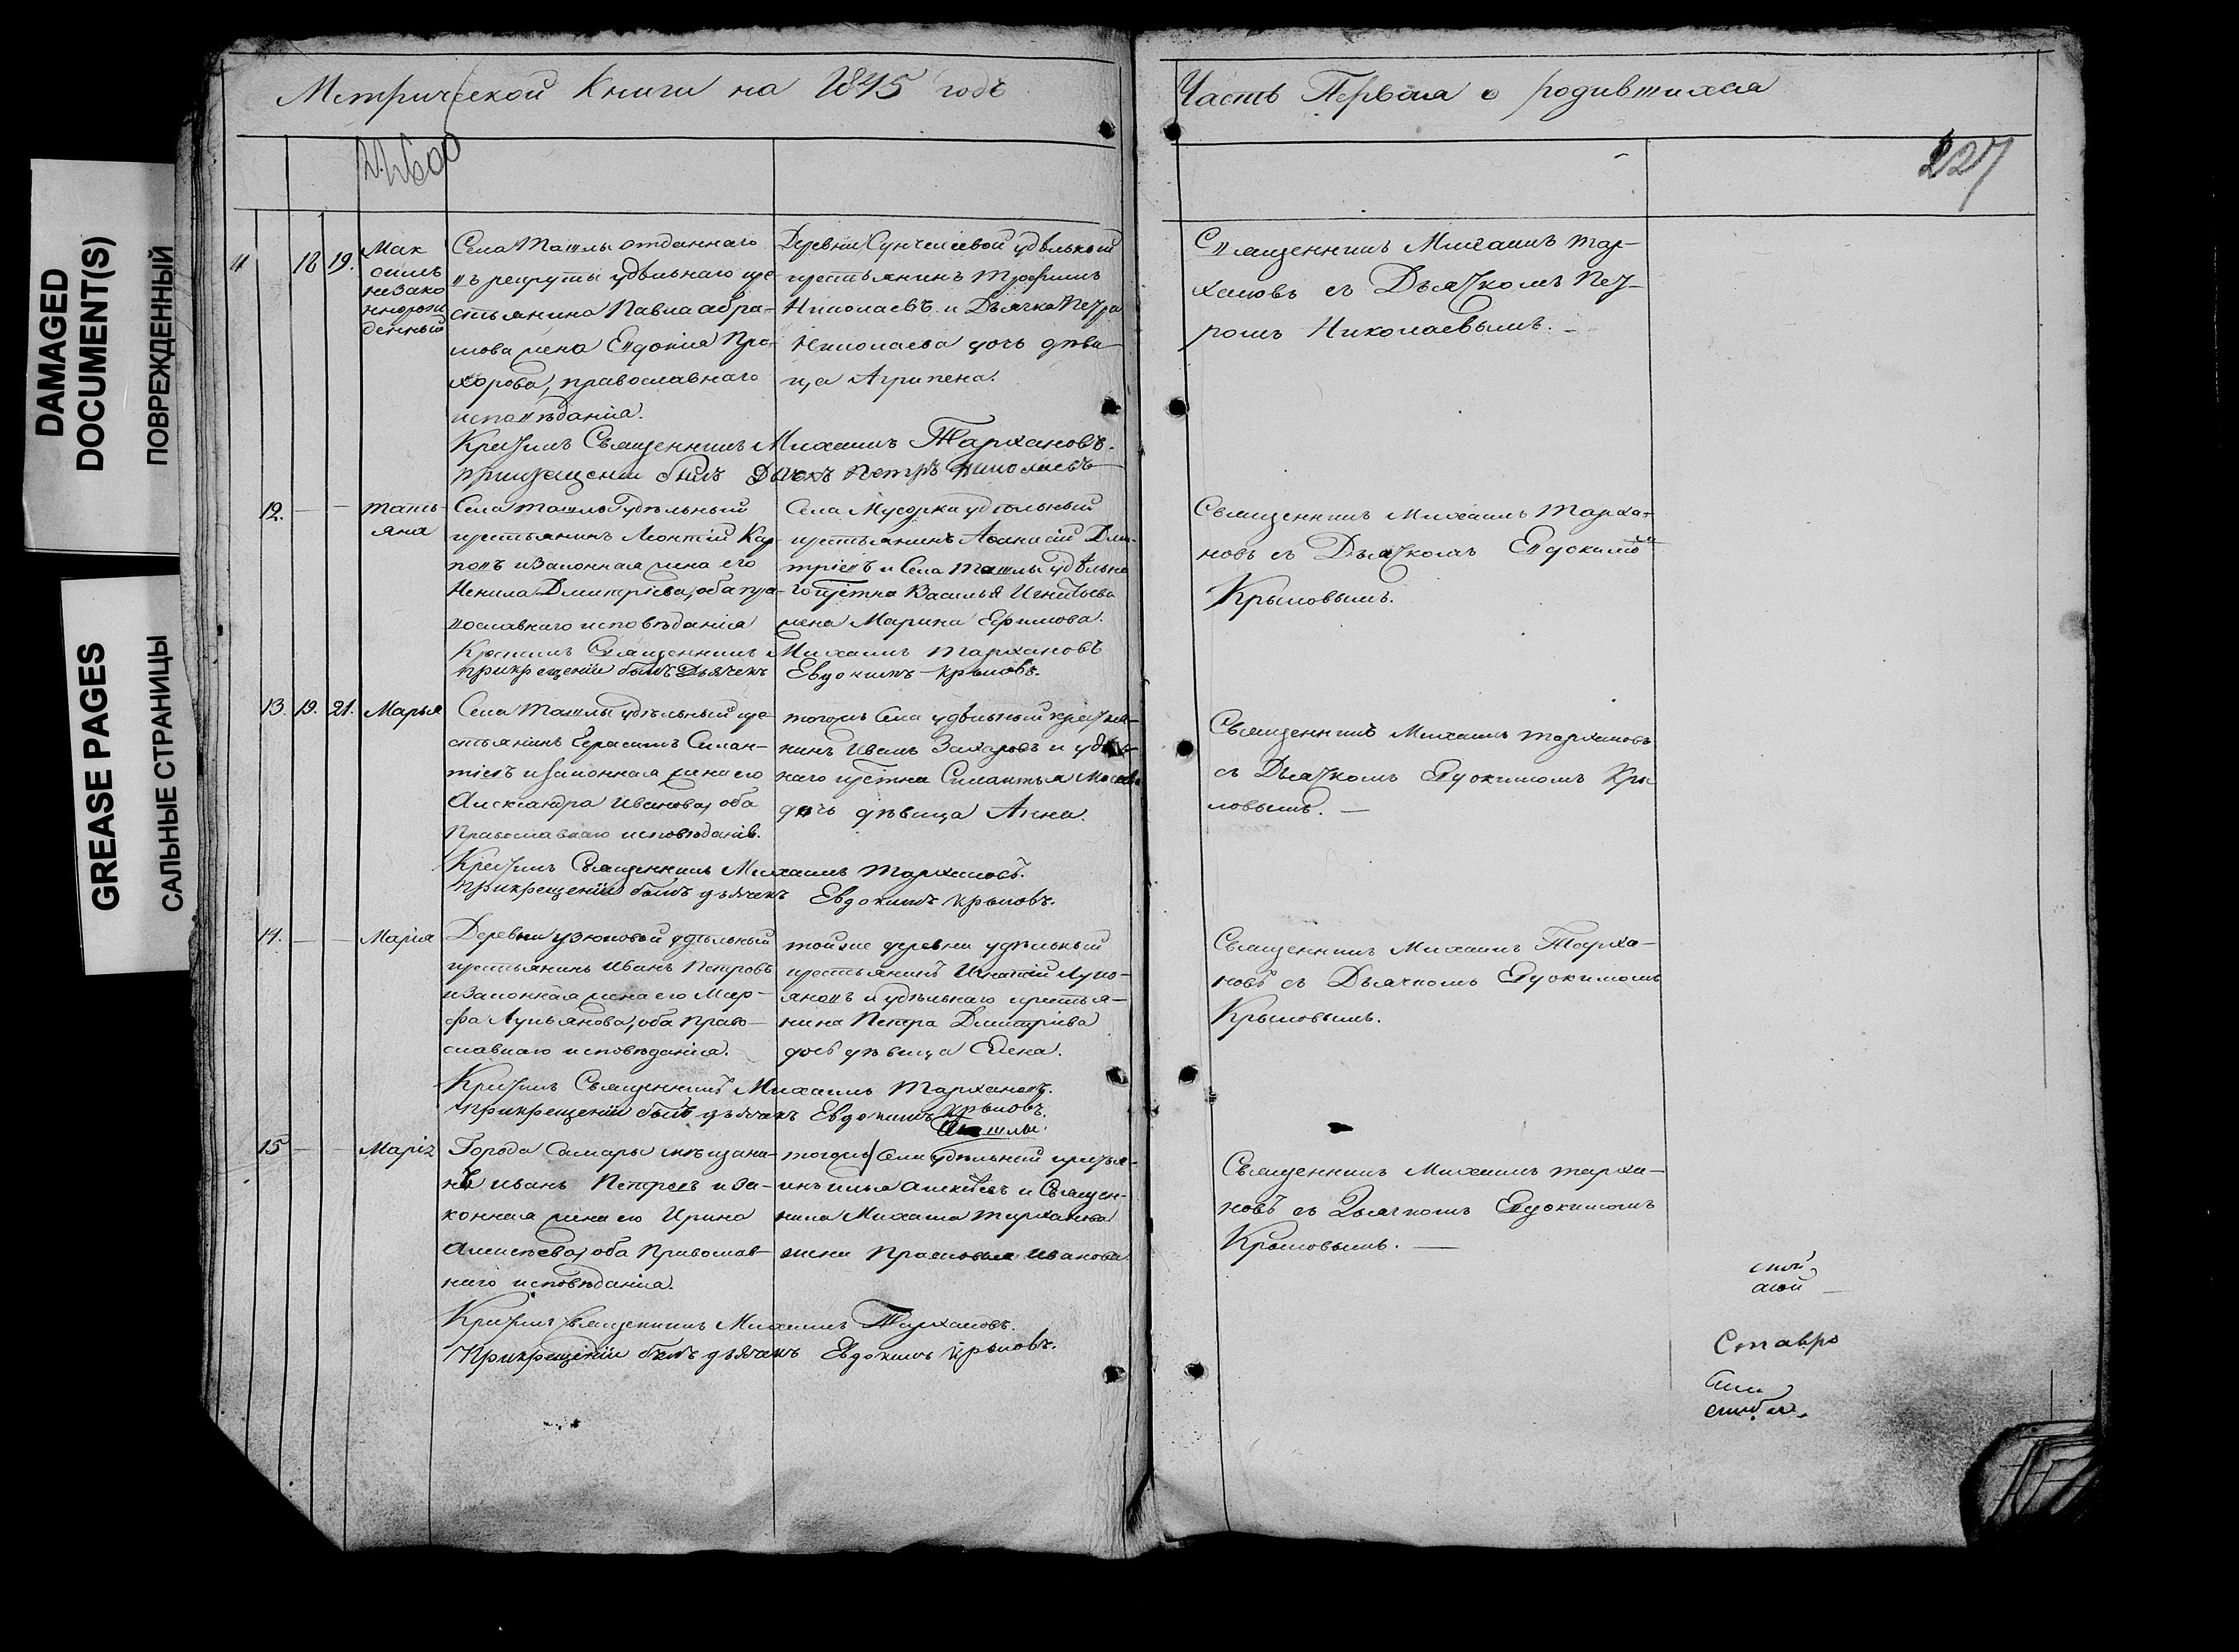 Метрической Книги на 1845 годъ
Часть Первая о родившихся
227
DAMAGED
DOCUMENT(S)
ПОВРЕЖДЕННЫЙ
GREASE PAGES
САЛЬНЫЕ СТРАНИЦЫ
11
18
19.
Мак
симъ
незако
ннорож
денный
Села Ташлы отданнаго
въ рекруты удѣльнаго кре-
стьянина Павла Абра-
мова жена Евдокія Про-
хорова, православнаго
исповѣданія.
Деревни Сунчелеевой удѣльный
крестьянинъ Трофимъ
Николаевъ и Дьячка Петра
Николаева дочь дѣви-
ца Агрипена.
Священникъ Михаилъ Тар-
хановъ съ Дьячкомъ Пет-
ромъ Николаевымъ. —
Крестилъ Священникъ Михаилъ Тархановъ.
при крещеніи былъ Дьячекъ Петръ Николаевъ
12.
Тать-
яна
Села Ташлы удѣльный
крестьянинъ Леонтій Кар-
повъ и законная жена его
Ненила Дмитріева, оба пра-
вославнаго исповѣданія
Села Мусорки удѣльный
крестьянинъ Афанасій Дми-
тріевъ и Села Ташлы удѣльна
го крестна Василья Игнатьева
жена Марина Ефимова.
Священникъ Михаилъ Тарха-
новъ съ Дьячкомъ Евдокимомъ
Крыловымъ.
Крестилъ Священникъ Михаилъ Тархановъ
при крещеніи былъ Дьячекъ Евдокимъ Крыловъ.
13.
19.
21.
Марья
Села Ташлы удѣльный кре-
стьянинъ Герасимъ Силан-
тіевъ и законная жена его
Александра Иванова, оба
Православнаго исповѣданія.
тогожъ Села удѣльный крестья-
нинъ Иванъ Захаровъ и удѣль-
наго крестна Силантья
дочь дѣвица Анна.
Священникъ Михаилъ Тархановъ
съ Дьячкомъ Евдокимомъ Кры
ловымъ. —
Крестилъ Священникъ Михаилъ Тархановъ.
при крещеніи былъ дьячекъ Евдокимъ Крыловъ.
14.
Марія
Деревни Узюковой удѣльный
крестьянинъ Иванъ Петровъ
и законная жена его Мар-
фа Лукьянова, оба Право-
славнаго исповѣданія.
той же деревни удѣльный
крестьянинъ Игнатій Лукь-
яновъ и удѣльнаго крестья-
нина Петра Дмитріева
дочь дѣвица Елена.
Священникъ Михаилъ Тарха-
новъ съ Дьячкомъ Евдокимомъ
Крыловымъ.
Крестилъ Священникъ Михаилъ Тархановъ.
при крещеніи былъ дьячекъ Евдокимъ Крыловъ.
Ташлы.
15
Марія
Города Самары мѣщани-
нъ Иванъ Петровъ и за-
конная жена его Ирина
Алексѣева, оба Православ-
наго исповѣданія.
тогожъ Села удѣльный крестья-
нинъ Илья Алексѣевъ и Священ-
ника Михаила Тарханова
жена Прасковья Иванова
Священникъ Михаилъ Тарха-
новъ съ Дьячкомъ Евдокимомъ
Крыловымъ. —
Крестилъ Священникъ Михаилъ Тархановъ.
При крещеніи былъ дьячекъ Евдокимъ Крыловъ.
Ставро